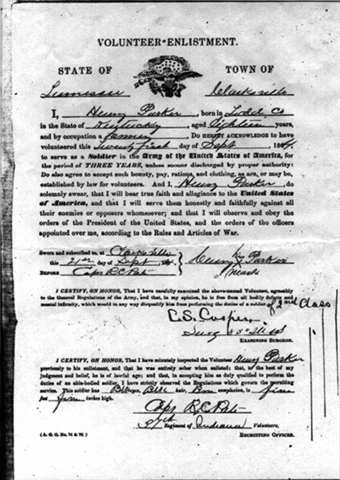 VOLUNTEER ENLISTMENT.
STATE OF TOWN OF
Tennessee Clarksville
I, Henry Parker born in Todd Co
in the State of Kentucky, aged Eighteen years,
and by occupation a Farmer Do HEREBY ACKNOWLEDGE to have
volunteered this Twenty first day of Sept 186
to serve as a Soldier in the Army of the United States of America, for
the period of THREE YEARS, unless sooner discharged by proper authority:
Do also agree to accept such bounty, pay, rations, and clothing, as are, or may be,
established by law for volunteers. And I, Henry Parker, do
solemnly swear, that I will bear true faith and allegiance to the United States
of America, and that I will serve them honestly and faithfully against all
their enemies or opposers whomsoever; and that I will observe and obey
the orders of the President of the United States, and the orders of the officers
appointed over me, according to the Rules and Articles of War.
Sworn and subscribed to, at Clarksville
this 21st day of Sept 186
BEFORE Capt R C
Henry Parker
mark
I CERTIFY, ON HONOR, That I have carefully examined the above-named Volunteer, agreeably
to the General Regulations of the Army, and that, in my opinion, he is free from all bodily defects and
mental infirmity, which would in any way disqualify him from performing the duties of a soldier
2nd Class
C.S. Cooper,
Surg
EXAMINING SURGEON.
I CERTIFY, ON HONOR, That I have minutely inspected the Volunteer Henry Parker
previously to his enlistment, and that he was entirely sober when enlisted; that, to the best of my
judgment and belief, he is of lawful age; and that, in accepting him as duly qualified to perform the
duties of an able-bodied soldier, I have strictly observed the Regulations which govern the recruiting
service. This soldier has eyes, hair, complexion, is five
feet inches high.
Capt R C
Regiment of Indiana Volunteers,
RECRUITING OFFICER.
(A. G. O. No. 74 & 76.)